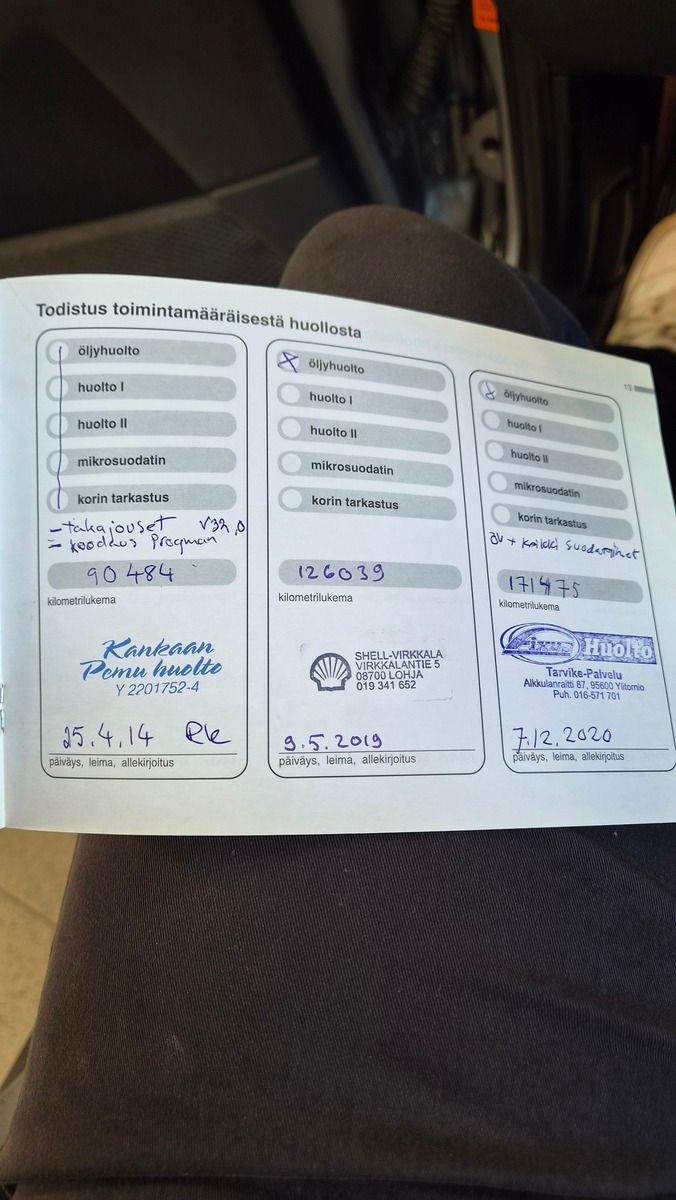 Todistus toimintamääräisestä huollosta
öljyhuolto
huolto I
huolto II
mikrosuodatin
korin tarkastus
- takajouset V32.0
- koodaus Progman
90 484
kilometrilukema
Kankaan
Pemu huolto
Y 2201752-4
25.4.14
päiväys, leima, allekirjoitus
öljyhuolto
huolto I
huolto II
mikrosuodatin
korin tarkastus
126039
kilometrilukema
SHELL-VIRKKALA
VIRKKALANTIE 5
08700 LOHJA
019 341 652
9.5.2019
päiväys, leima, allekirjoitus
19
öljyhuolto
huolto I
huolto II
mikrosuodatin
korin tarkastus
öv + kaikki suodattimet
171475
kilometrilukema
Fixus Huolto
Tarvike-Palvelu
Alkkulanraitti 87, 95600 Ylitornio
Puh. 016-571 701
7.12.2020
päiväys, leima, allekirjoitus